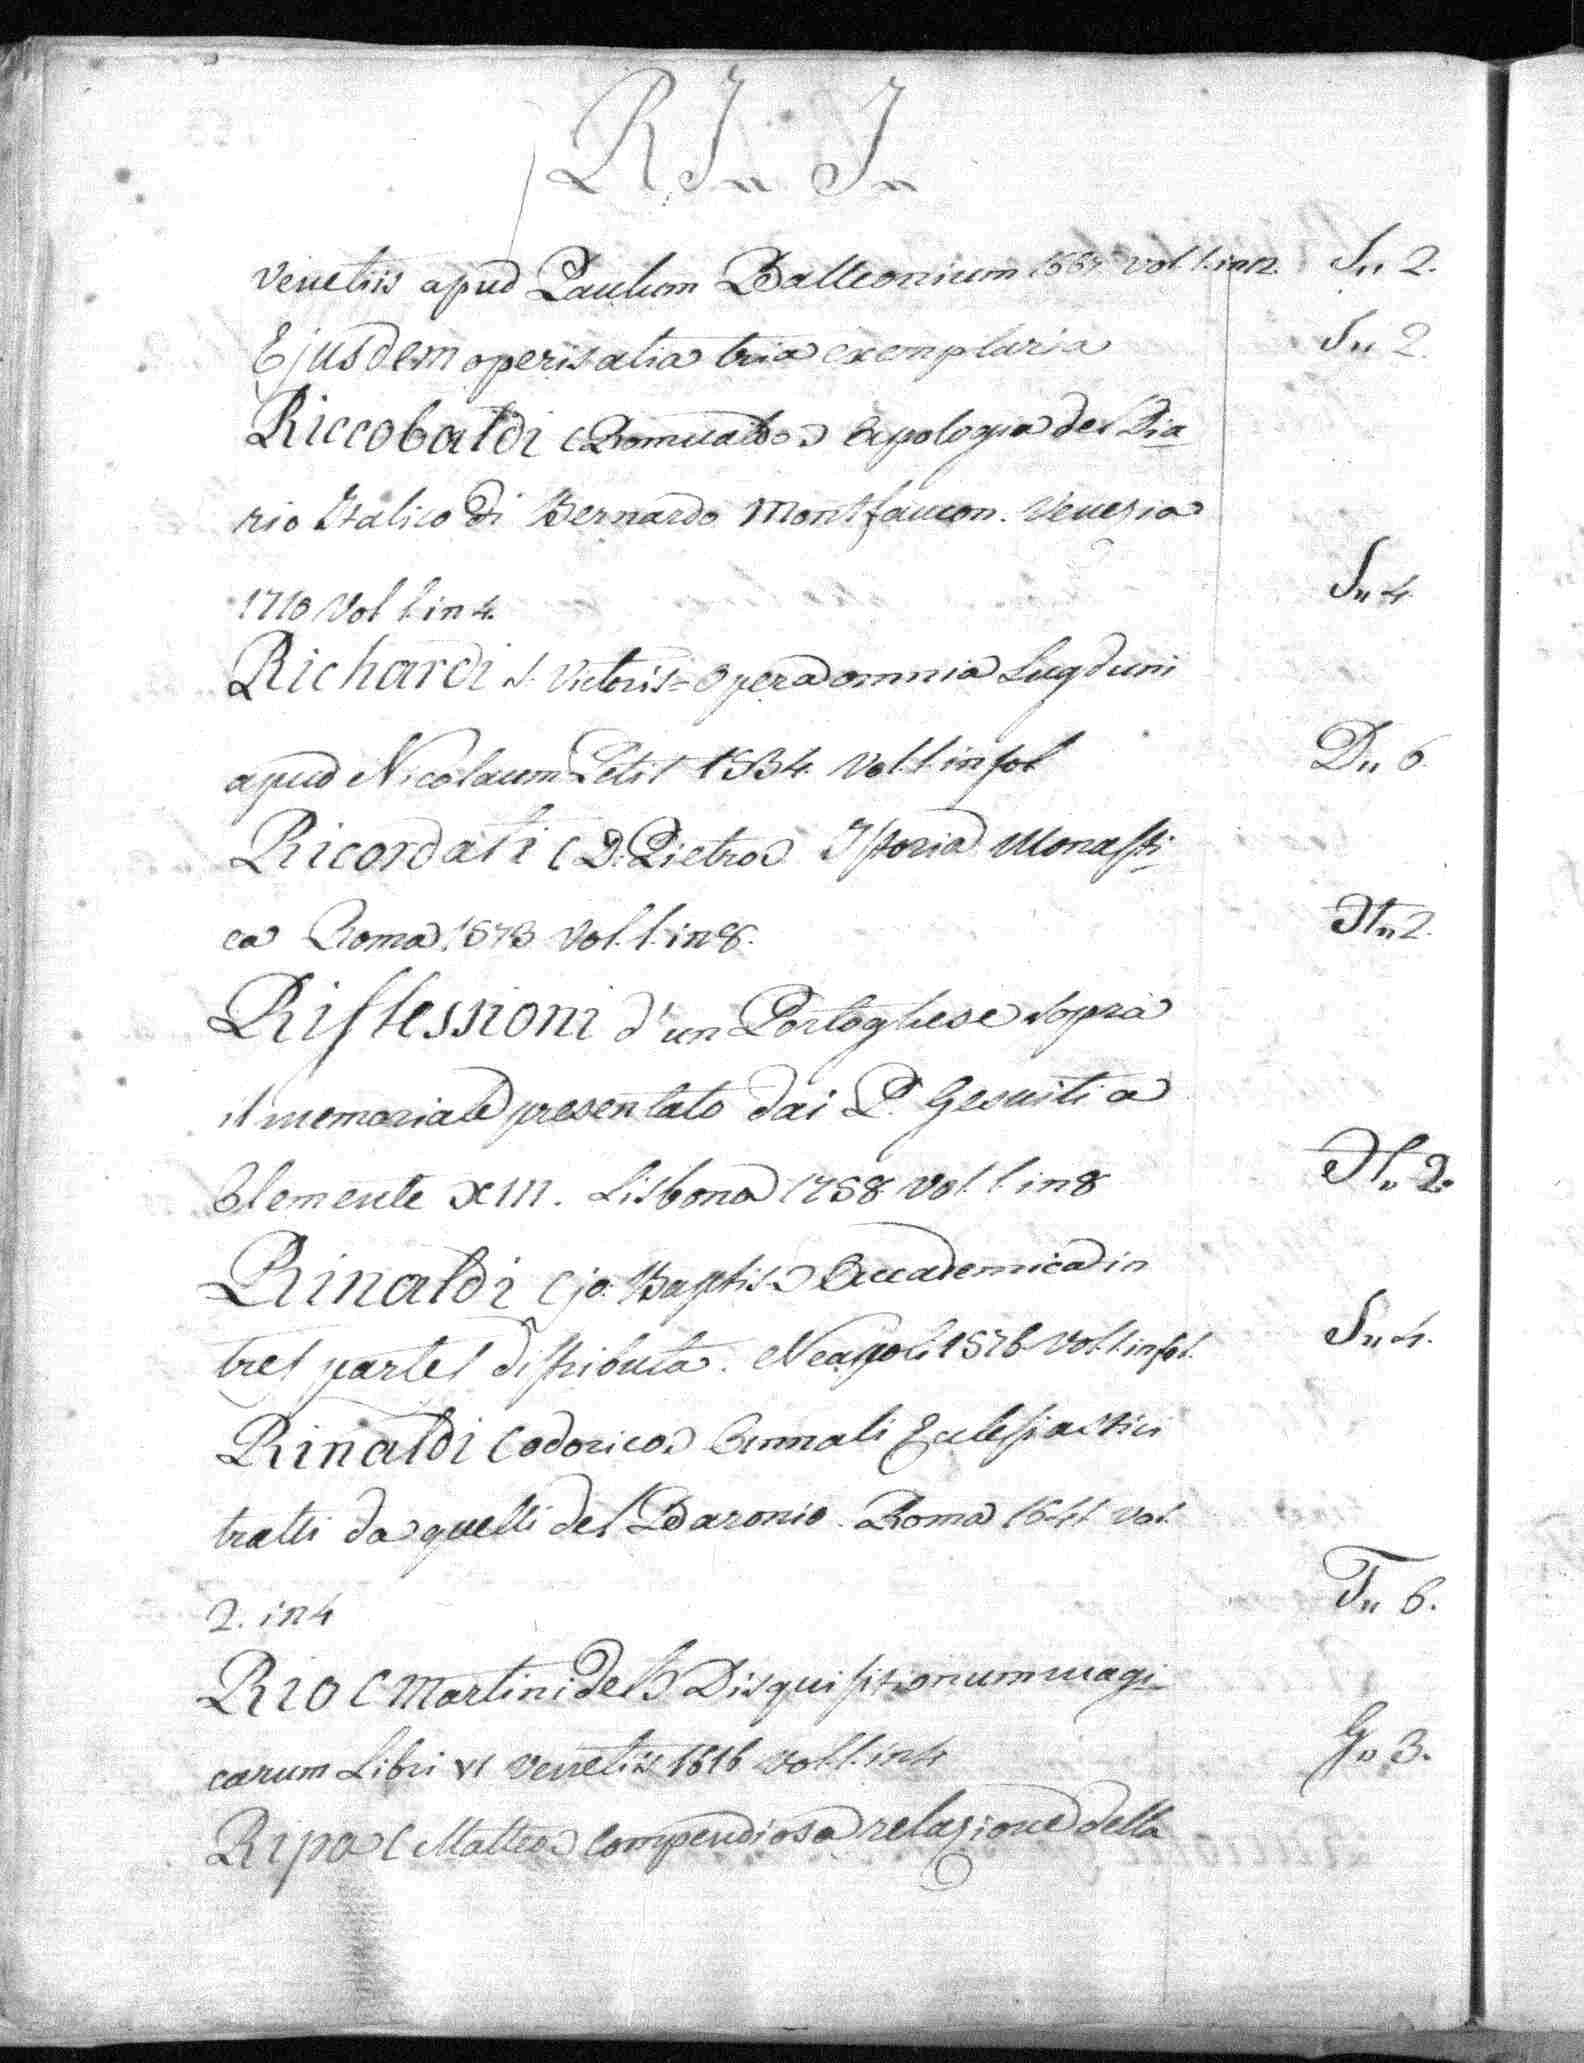 RI„ I„
Venetiis apud Paulum Balleonium vol. 1. in 12. S„ 2.
Ejusdem operis alia tria exemplaria S„ 2.
Riccobaldi (Romualdo) Apologia del Dia
rio Italico di Bernardo Montfaucon. Venezia
1710 Vol 1. in 4. S„ 4.
Richardi S. Victoris = Opera omnia Lugduni
apud Nicolaum Petit 1534. Vol. 1. in fol D„ 6.
Ricordati (D. Pietro) Istoria Monasti
ca Roma 1575 Vol. 1. in 8. H„ 2.
Riflessioni d'un Portoghese sopra
il memoriale presentato dai P. Gesuiti a
Clemente XIII. Lisbona 1758 Vol. 1. in 8 H„ 2.
Rinaldi (Jo: Baptis.) Accademica in
tres partes distributa. Neapoli 1576 Vol. 1. in fol. S„ 4.
Rinaldi (Odorico) Annali Ecclesiastici
tratti da quelli del Baronio. Roma 1641 Vol.
2. in 4 T„ 6.
Rio (Martini del) Disquisitionum magi
carum Libri VI Venetiis 1616 vol. 1. in 4 G„ 3.
Ripa (Matteo) Compendiosa relazione della